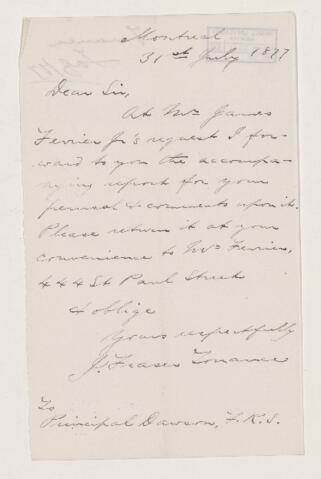 Montreal
31st July 1877
Dear Sir,
At Mr James
Ferrier Jr's request I for-
ward to you the accompa-
nying report for your
perusal & comments upon it.
Please return it at your
convenience to Mr Ferrier,
444 St Paul Street
& oblige
Yours respectfully
J. Fraser Torrance
To
Principal Dawson, F.R.S.